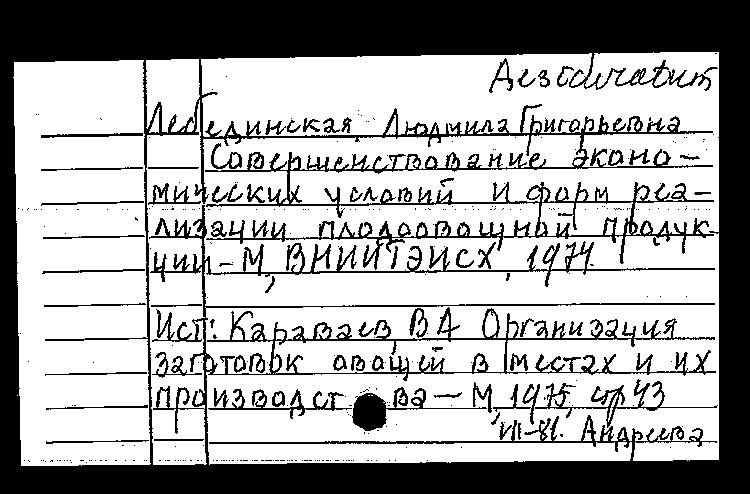 Лебединская, Людмила Григорьевна
Совершенствование эконо-
мических условий и форм реа-
лизации плодоовощной продук-
ции – М, ВНИИТЭИСХ, 1974.
Ист: Караваев, ВА Организация
заготовок овощей в местах и их
производства – М, 1975, стр 43
VII-81. Андреева